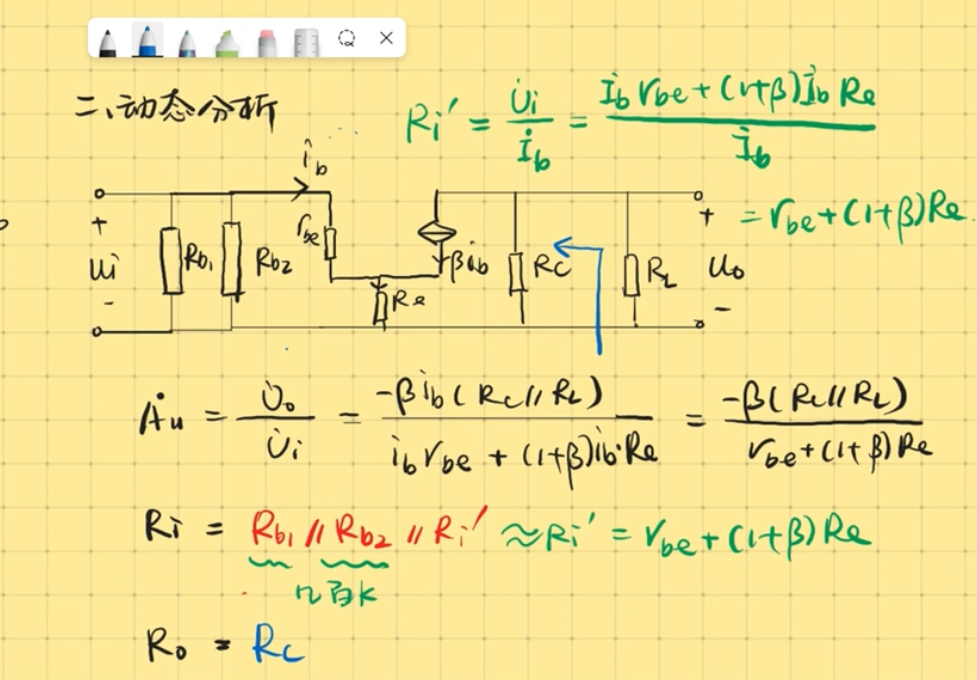 二、动态分析
Ri' = U̇i / İb = (İb rbe + (1+β)İb Re) / İb
= rbe + (1+β)Re
ib
+ Ui -
Rb1
Rb2
rbe
Re
βib
RC
RL
+ Uo -
Ȧu = U̇o / U̇i = -βib(RC // RL) / (ib rbe + (1+β)ib·Re) = -β(RC // RL) / (rbe + (1+β)Re)
Ri = Rb1 // Rb2 // Ri' ≈ Ri' = rbe + (1+β)Re
几百K
Ro = RC